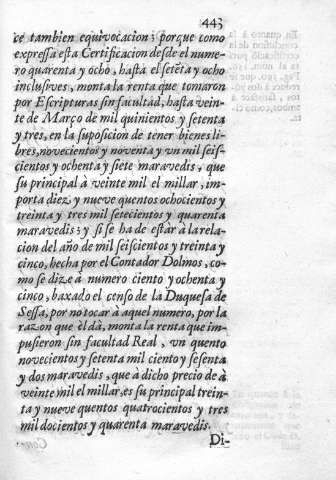 443
ce tambien equivocacion; porque como
expressa esta Certificacion desde el nume-
ro quarenta y ocho, hasta el setẽta y ocho
inclusives, monta la renta que tomaron
por Escripturas sin facultad, hasta vein-
te de Março de mil quinientos y setenta
y tres, en la suposicion de tener bienes li-
bres, novecientos y noventa y vn mil seis-
cientos y ochenta y siete maravedis, que
su principal à veinte mil el millar, im-
porta diez y nueve quentos ochocientos y
treinta y tres mil setecientos y quarenta
maravedis; y si se ha de estàr à la rela-
cion del año de mil seiscientos y treinta y
cinco, hecha por el Contador Dolmos, co-
mo se dize à numero ciento y ochenta y
cinco, baxado el censo de la Duquesa de
Sessa, por no tocar à aquel numero, por la
razon que èl dà, monta la renta que im-
pusieron sin facultad Real, vn quento
novecientos y setenta mil ciento y sesenta
y dos maravedis, que à dicho precio de à
veinte mil el millar, es su principal trein-
ta y nueve quentos quatrocientos y tres
mil docientos y quarenta maravedis.
Di-